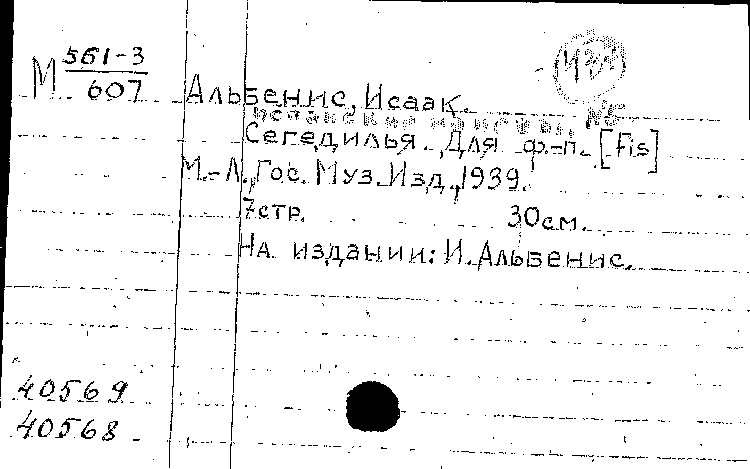 М 561-3
607
Альбенис, Исаак.
Испанские напевы. №5
Сегедилья. Для ф.-п. [Fis]
М.-Л., Гос. Муз. Изд., 1939.
7 стр. 30 см.
На издании: И. Альбенис.
40569
40568